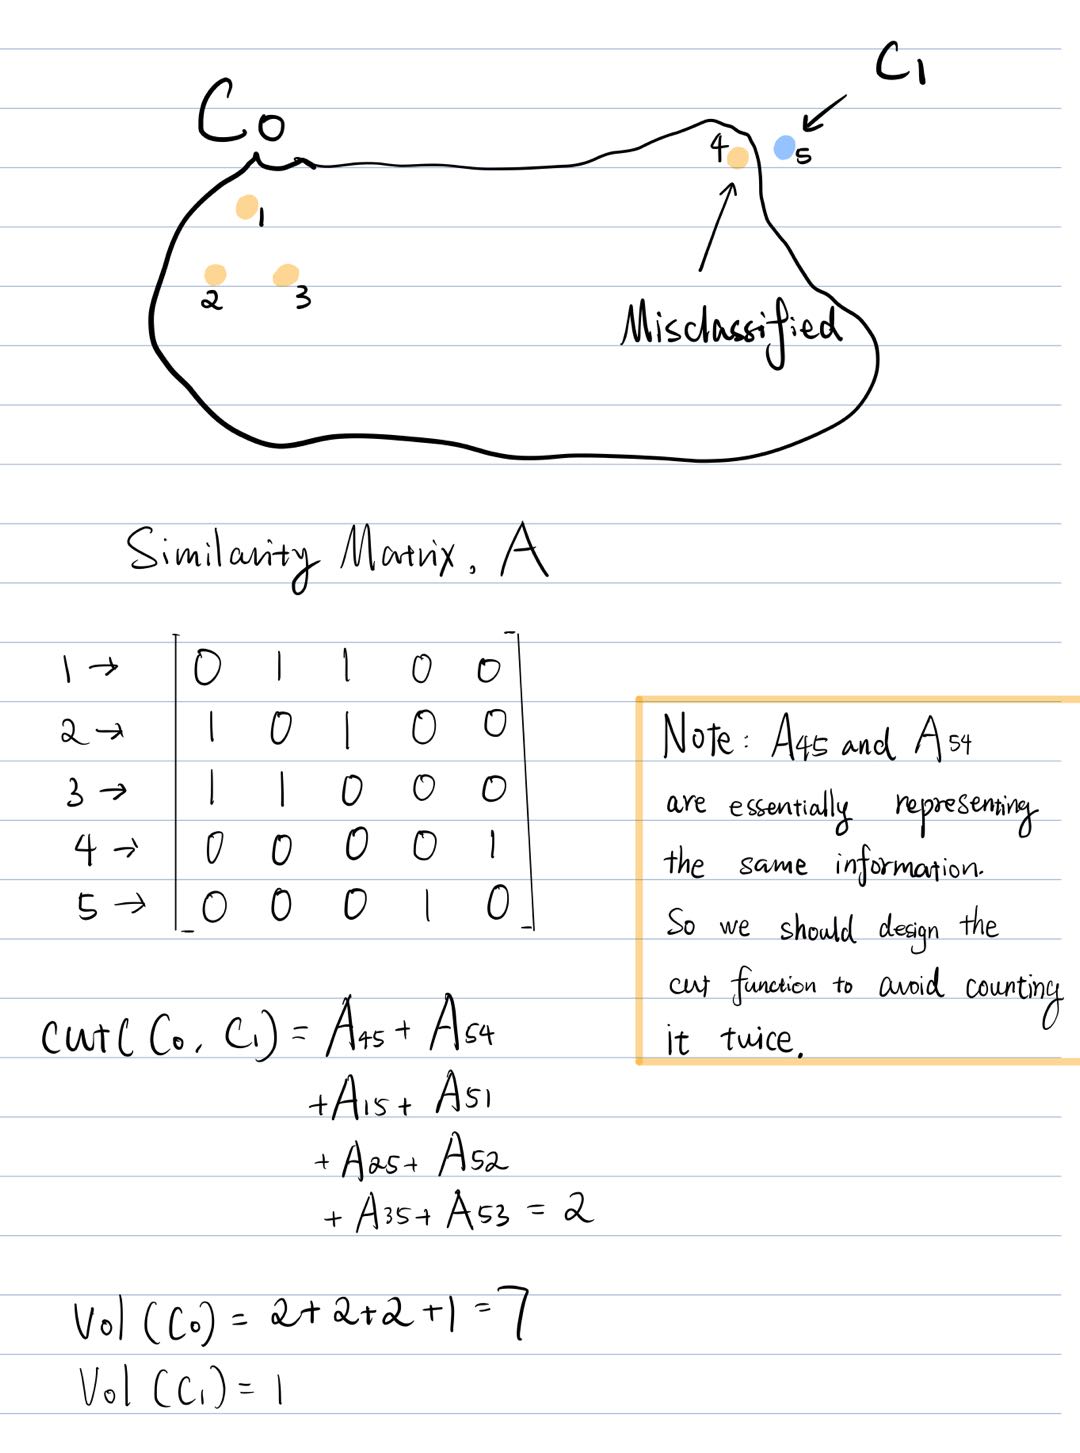 C₁
C₀
4
5
1
2
3
Misclassified
Similarity Matrix, A
1 → 0 1 1 0 0
2 → 1 0 1 0 0
3 → 1 1 0 0 0
4 → 0 0 0 0 1
5 → 0 0 0 1 0
Note: A₄₅ and A₅₄
are essentially representing
the same information.
So we should design the
cut function to avoid counting
it twice.
cut(C₀, C₁) = A₄₅ + A₅₄
+ A₁₅ + A₅₁
+ A₂₅ + A₅₂
+ A₃₅ + A₅₃ = 2
Vol (C₀) = 2+2+2+1 = 7
Vol (C₁) = 1